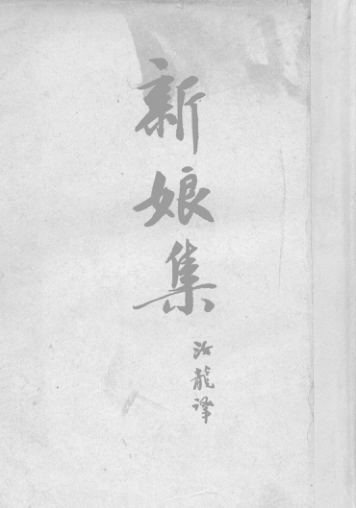 新娘集
汝龍譯